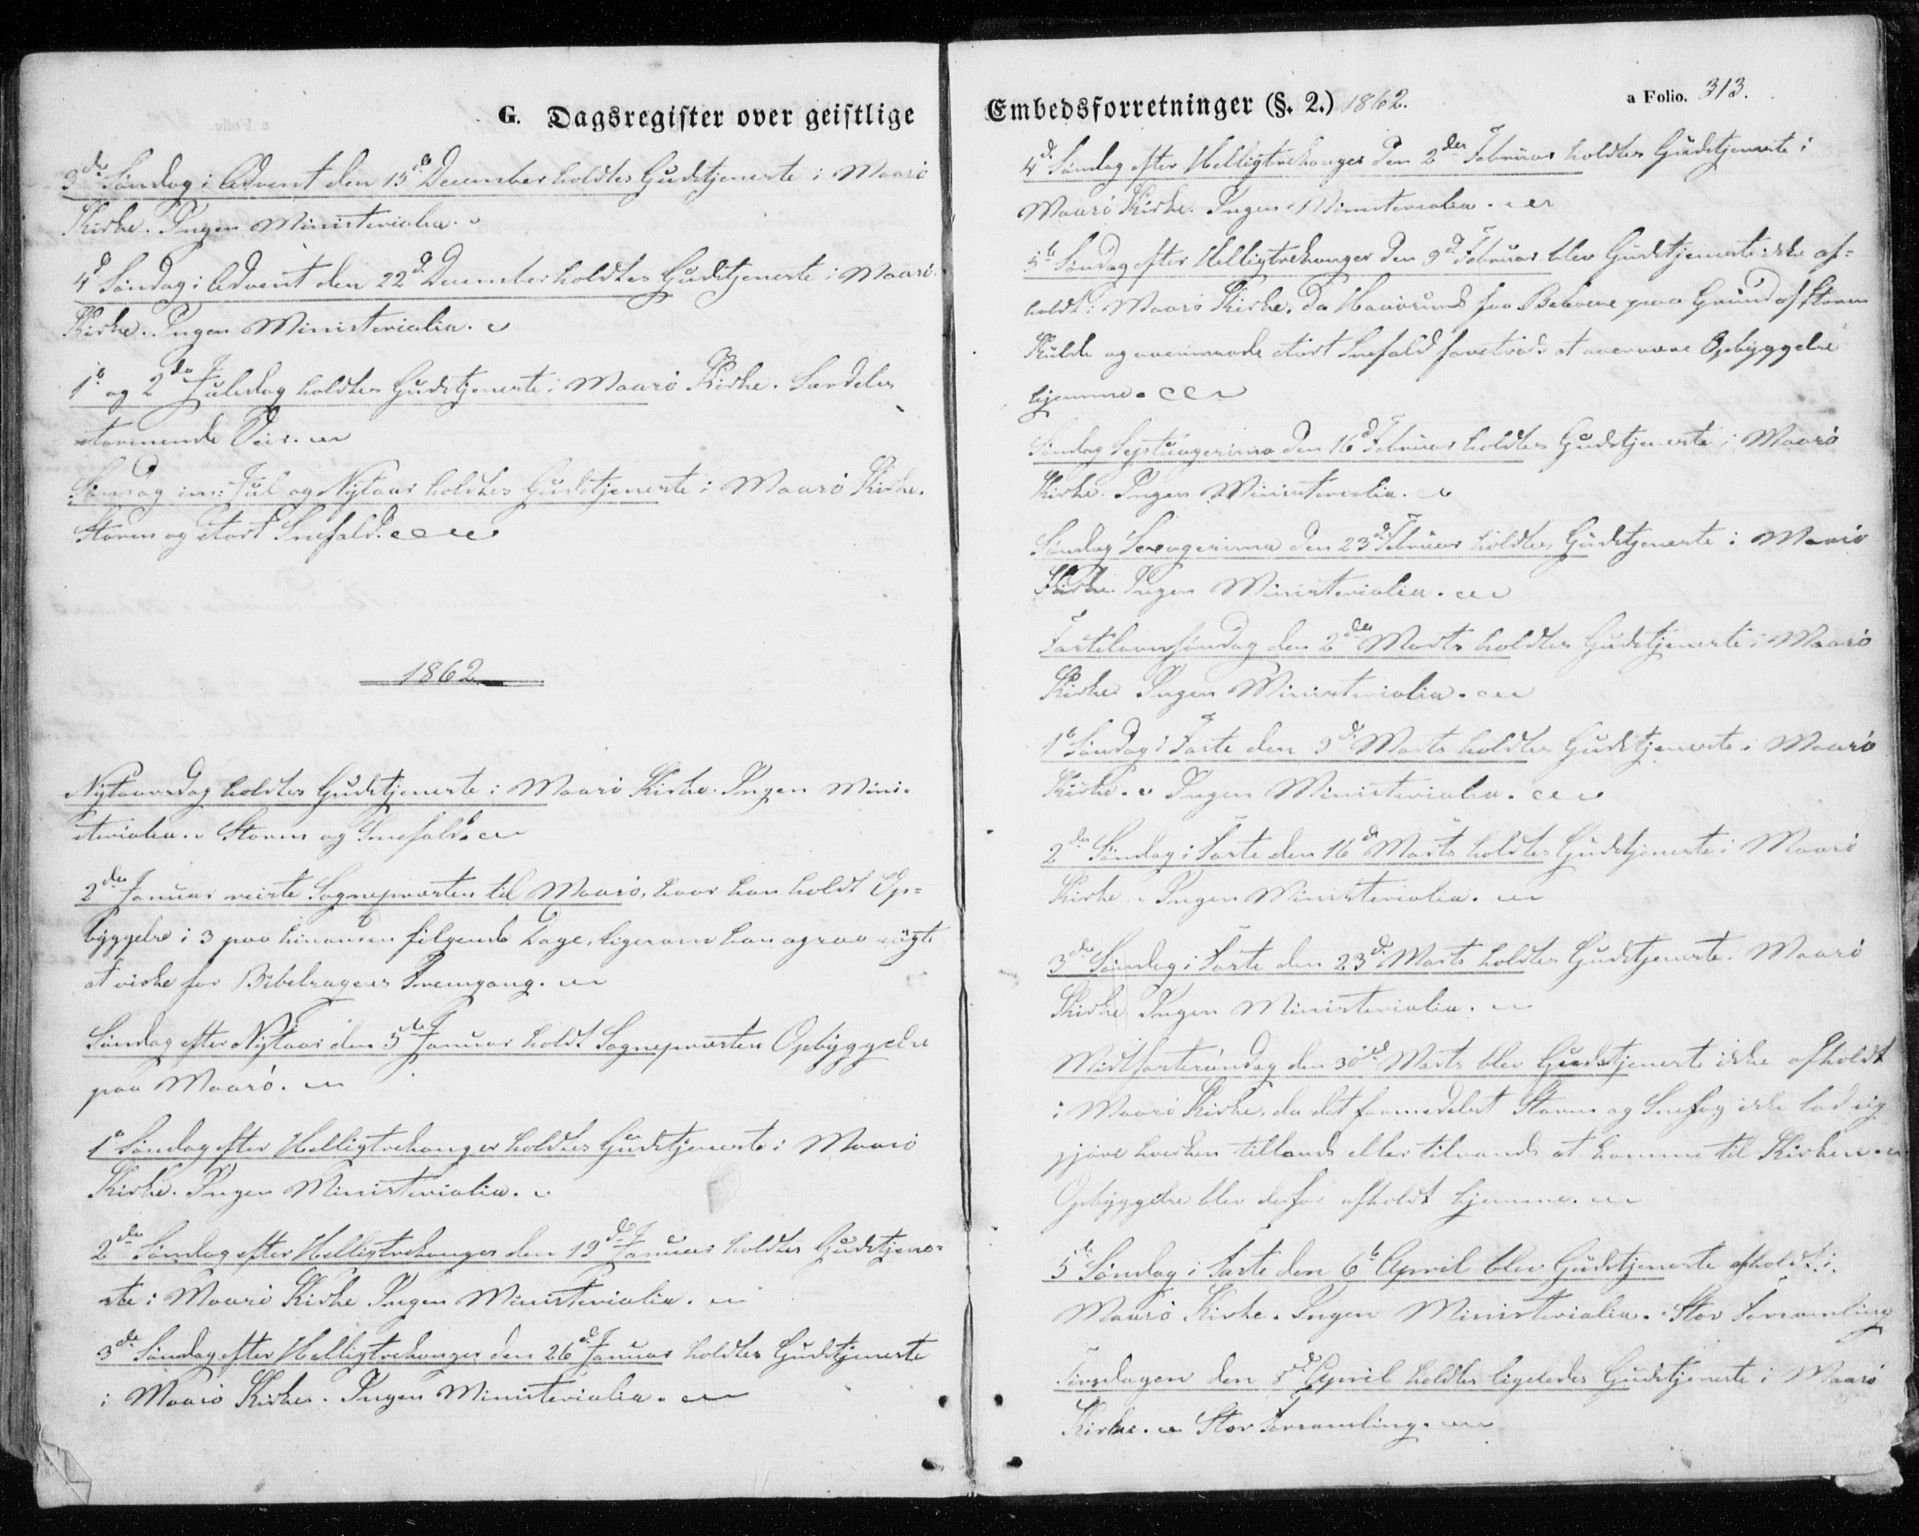 G. Dagsregister over geistlige
3die Søndag i Advent den 15de December holdtes Gudstjeneste i Maasö
Kirke. Ingen Ministerialia.
4d Søndag i Advent den 22d December holdtes Gudstjeneste i Maasö
Kirke. Ingen Ministerialia.
1e og 2den Juledag holdtes Gudstjeneste i Maasö Kirke. Særdeles
stormende Veir.
Søndag im: Jul og Nytaar holdtes Gudstjeneste i Maasö Kirke.
Storm og stort Snefald.
1862
Nytaarsdag holdtes Gudstjeneste i Maasö Kirke. Ingen Mini-
sterialia. Storm og Snefald.
2den Januar reiste Sognepræsten til Maasö, hvor han holdt Op-
byggelse i 3 paa hinanden følgende Dage, ligesom han ogsaa søgte
at virke for Bibelsagens Fremgang.
Søndag efter Nytaar den 5te Januar holdt Sognepræsten Opbyggelse
paa Maasö.
1e Søndag efter Helligtrekonger holdtes Gudstjeneste i Maasö
Kirke. Ingen Ministerialia.
2den Søndag efter Helligtrekonger den 19de Januar holdtes Gudstjene-
ste i Maasö Kirke Ingen Ministerialia.
3die Søndag efter Helligtrekonger den 26de Januar holdtes Gudstjeneste
i Maasö Kirke. Ingen Ministerialia.
Embedsforretninger (§. 2.) 1862.
a Folio. 313.
4d Søndag efter Helligtrekonger den 2den Februar holdtes Gudstjeneste i
Maasö Kirke. Ingen Ministerialia.
5te Søndag efter Helligtrekonger den 9d Februar blev Gudstjeneste ikke af-
holdt i Maasö Kirke, da Havösunds faa Beboere paa Grund af Storm
Kulde og overmaade stort Snefald foretrak at overvære Opbyggelse
hjemme.
Søndag Septuagesima den 16d Februar holdtes Gudstjeneste i Maasö
Kirke. Ingen Ministerialia.
Søndag Sexagesima den 23d Februar holdtes Gudstjeneste i Maasö
Kirke. Ingen Ministerialia.
Fastelavnssøndag den 2den Marts holdtes Gudstjeneste i Maasö
Kirke Ingen Ministerialia.
1e Søndag i Faste den 9de Marts holdtes Gudstjeneste i Maasö
Kirke. Ingen Ministerialia.
2den Søndag i Faste den 16d Marts holdtes Gudstjeneste i Maasö
Kirke. Ingen Ministerialia.
3die Søndag i Faste den 23d Marts holdtes Gudstjeneste i Maasö
Kirke Ingen Ministerialia.
Midtfastesøndag den 30d Marts blev Gudstjeneste ikke afholdt
i Maasö Kirke, da det formedelst Storm og Snefog ikke lod sig
gjøre hverken tillands eller tilvands at komme til Kirken.
Opbyggelse blev derfor afholdt hjemme.
5te Søndag i Faste den 6te April blev Gudstjeneste afholdt i
Maasö Kirke. Ingen Ministerialia. Stor Forsamling
Tirsdagen den 8d April holdtes ligeledes Gudstjeneste i Maasö
Kirke. Stor Forsamling.